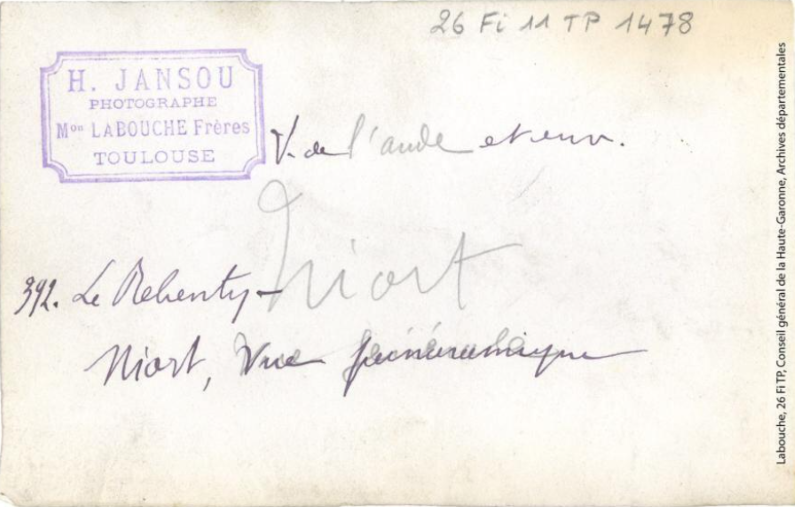 26 Fi 11 TP 1478
H. JANSOU
PHOTOGRAPHE
Mon LABOUCHE Frères
TOULOUSE
V. de l'aude et env.
Niort
392. Le Rebenty –
Niort, Vue
Labouche, 26 Fi TP, Conseil général de la Haute-Garonne, Archives départementales